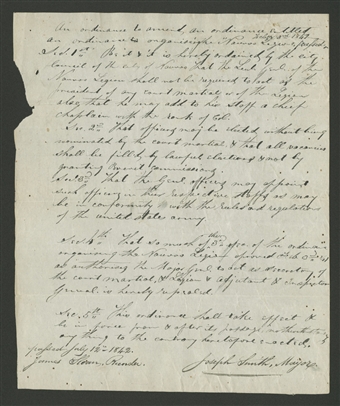 An ordinance to amend, an ordinance entitled
an ordinance organizing the Nauvoo Legion, passed
Sec. 1st Be it & it is hereby ordained by the city
council of the city of Nauvoo that the Lieut Genl of the
Nauvoo Legion shall not be required to act as the
president of any court martial, of the Legion
also, that he may add to his Staff a chief
chaplain with the rank of Col.
Sec. 2d That officers may be elected, without being
nominated by the court martial & that all vacancies
shall be filled by lawful elections & not by
granting commissions
Sec. 3d That the Genl officers may appoint
such officers in their respective Staffs as may
be in conformity with the rules and regulations
of the united states army.
Sec. 4th That so much of sec. of the ordinance
organizing the Nauvoo Legion
as authorizes the Major Genl to act as Secretary of
the court martial, & Legion & adjutant & inspector
General is hereby repealed.
Sec. 5th This ordinance shall take effect &
be in force from & after its passage, notwithstanding
any thing to the contrary heretofore enacted.
passed July 12th 1842.
James Sloan, Recorder.
Joseph Smith, Mayor